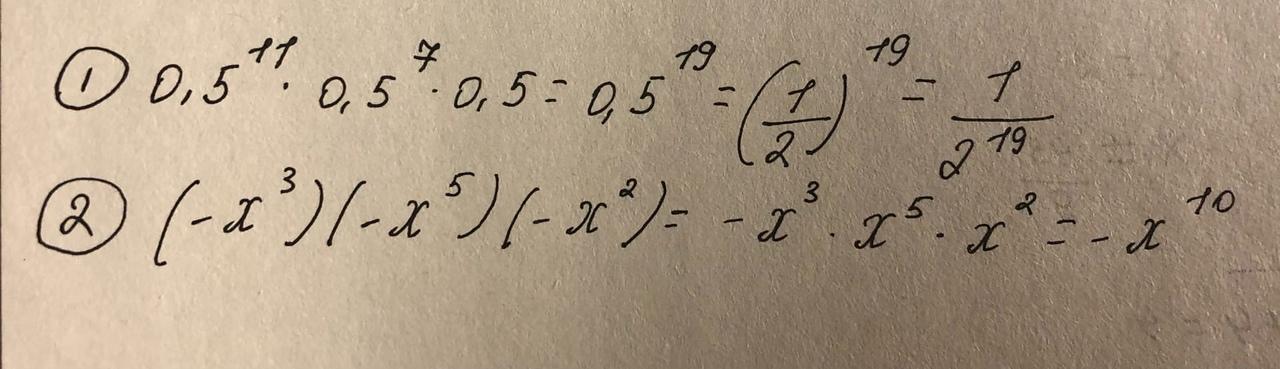 ① 0,5¹¹ · 0,5⁷ · 0,5 = 0,5¹⁹ = (1/2)¹⁹ = 1/2¹⁹
② (-x³)(-x⁵)(-x²) = -x³ · x⁵ · x² = -x¹⁰